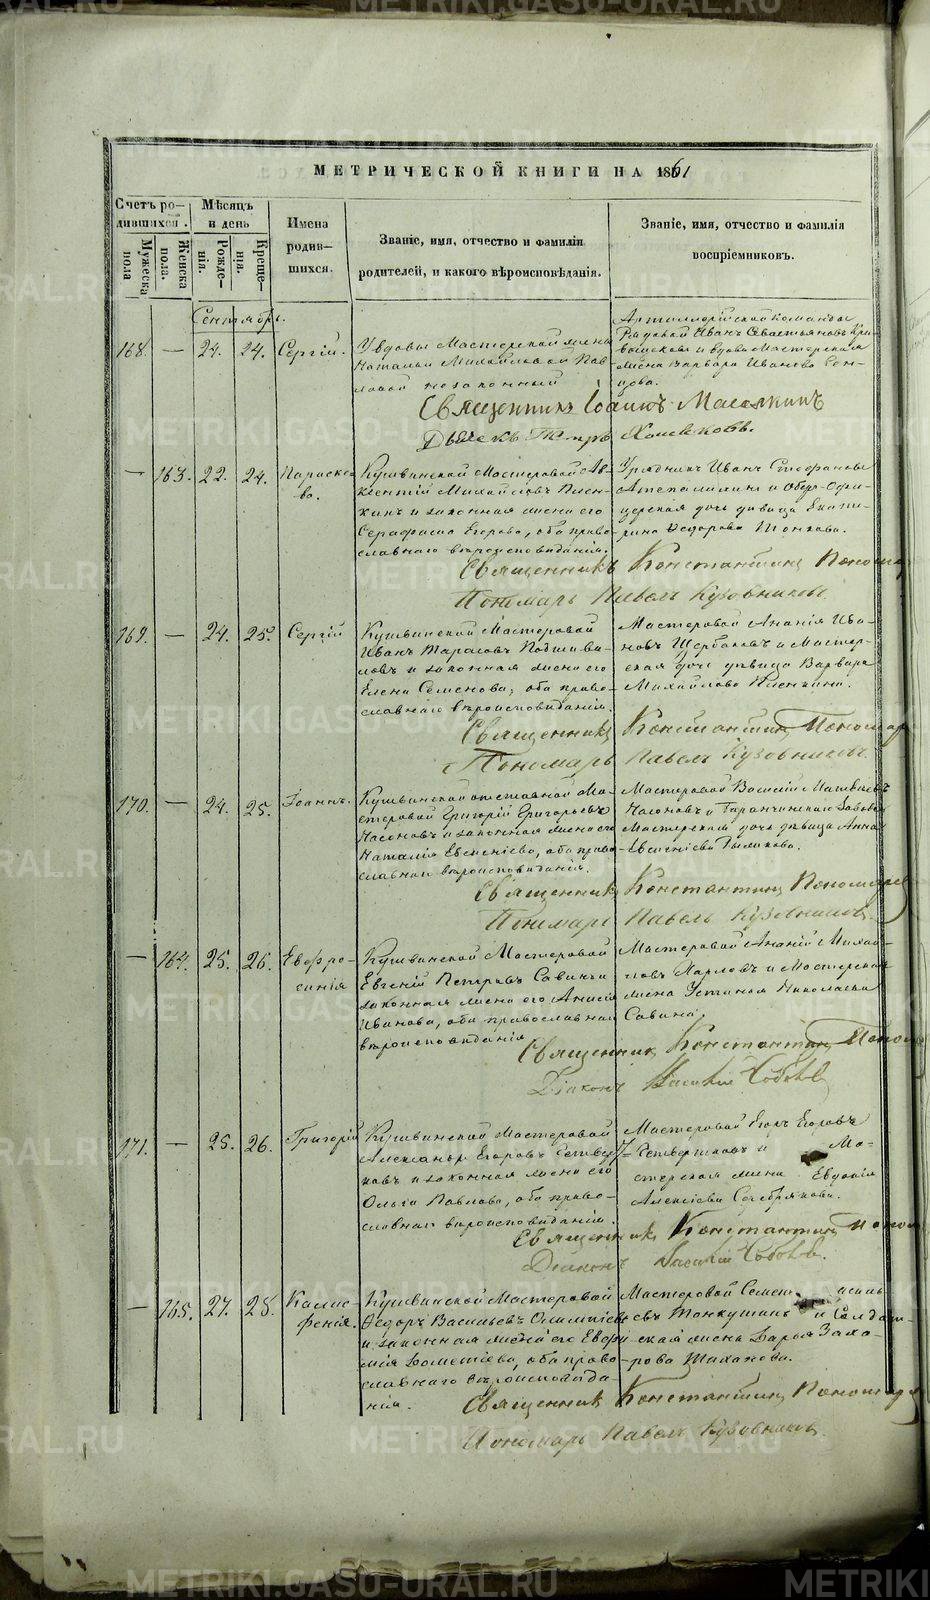 МЕТРИЧЕСКОЙ КНИГИ НА 1861
Счетъ ро-
дившихся.
Мужеска пола
Женска пола.
Мѣсяцъ
и день
Рожде-
нія.
Креще-
нія.
Имена
родив-
шихся.
Званіе, имя, отчество и фамилія
родителей, и какого вѣроисповѣданія.
Званіе, имя, отчество и фамилія
воспріемниковъ.
Сентябрь.
168. — 24. 24. Сергій.
У вдовы Мастерской жены
Натальи Михайловой Пав-
ловой незаконный
Артиллерійской команды
Рядовой Иванъ Севастьяновъ
и вдова Мастерская
жена Варвара Иванова
Священникъ Іоаннъ
Дьячекъ Петръ Хомяковъ.
— 163. 22. 24. Параске-
ва.
Кушвинской Мастеровой Ав-
ксентій Михайловъ Плен-
кинъ и законная жена его
Серафима Егорова, оба право-
славнаго вѣроисповѣданія.
Урядникъ Иванъ Стефановъ
и Оберъ-Офи-
церская дочь дѣвица Екате-
рина Ѳедорова
Священникъ Константинъ Пономар
Пономарь Павелъ Кузовниковъ
169. — 24. 25. Сергій
Кушвинской Мастеровой
Иванъ Тарасовъ Подшива-
ловъ и законная жена его
Елена Семенова, оба право-
славнаго вѣроисповѣданія.
Мастеровой Ананія Ива-
новъ Щербаковъ и Мастер-
ская дочь дѣвица Варвара
Михайлова Пленкина.
Священникъ Константинъ Пономар
Пономарь Павелъ Кузовниковъ
170. — 24. 25. Іоаннъ.
Кушвинской отставной Ма-
стеровой Григорій Григорьевъ
Насоновъ и законная жена его
Наталія Евгеніева, оба право-
славнаго вѣроисповѣданія.
Мастеровой Василій Матвѣевъ
Насоновъ и Баранчинскаго завода
Мастерская дочь дѣвица Анна
Евгеніева
Священникъ Константинъ Пономарев
Пономарь Павелъ Кузовниковъ
— 164. 25. 26. Евфро-
синія
Кушвинской Мастеровой
Евгеній Петровъ Савинъ и
законная жена его Анисія
Иванова, оба православнаго
вѣроисповѣданія
Мастеровой Ананій Михай-
ловъ Карповъ и Мастерская
жена Устинья Николаева
Савина.
Священникъ Константинъ Поном
Діаконъ Василій
171. — 25. 26. Григорій
Кушвинской Мастеровой
Александръ Егоровъ Четвер-
ковъ и законная жена его
Ольга Павлова, оба право-
славнаго вѣроисповѣданія.
Мастеровой Егоръ Егоровъ
Четвертковъ и Ма-
стерская жена Евдокія
Алексіева Серебрякова.
Священникъ Константинъ Поном
Діаконъ Василій
— 165. 27. 28. Каллис-
фенія.
Кушвинской Мастеровой
Ѳедоръ Васильевъ Олимпіевъ
и законная жена его Евфи-
мія Дометіева, оба право-
славнаго вѣроисповѣда-
нія.
Мастеровой Семенъ
евъ и Солдат-
ская жена Дарья Заха-
рова
Священникъ Константинъ Пономарев
Пономарь Павелъ Кузовниковъ
METRIKI.GASO-URAL.RU